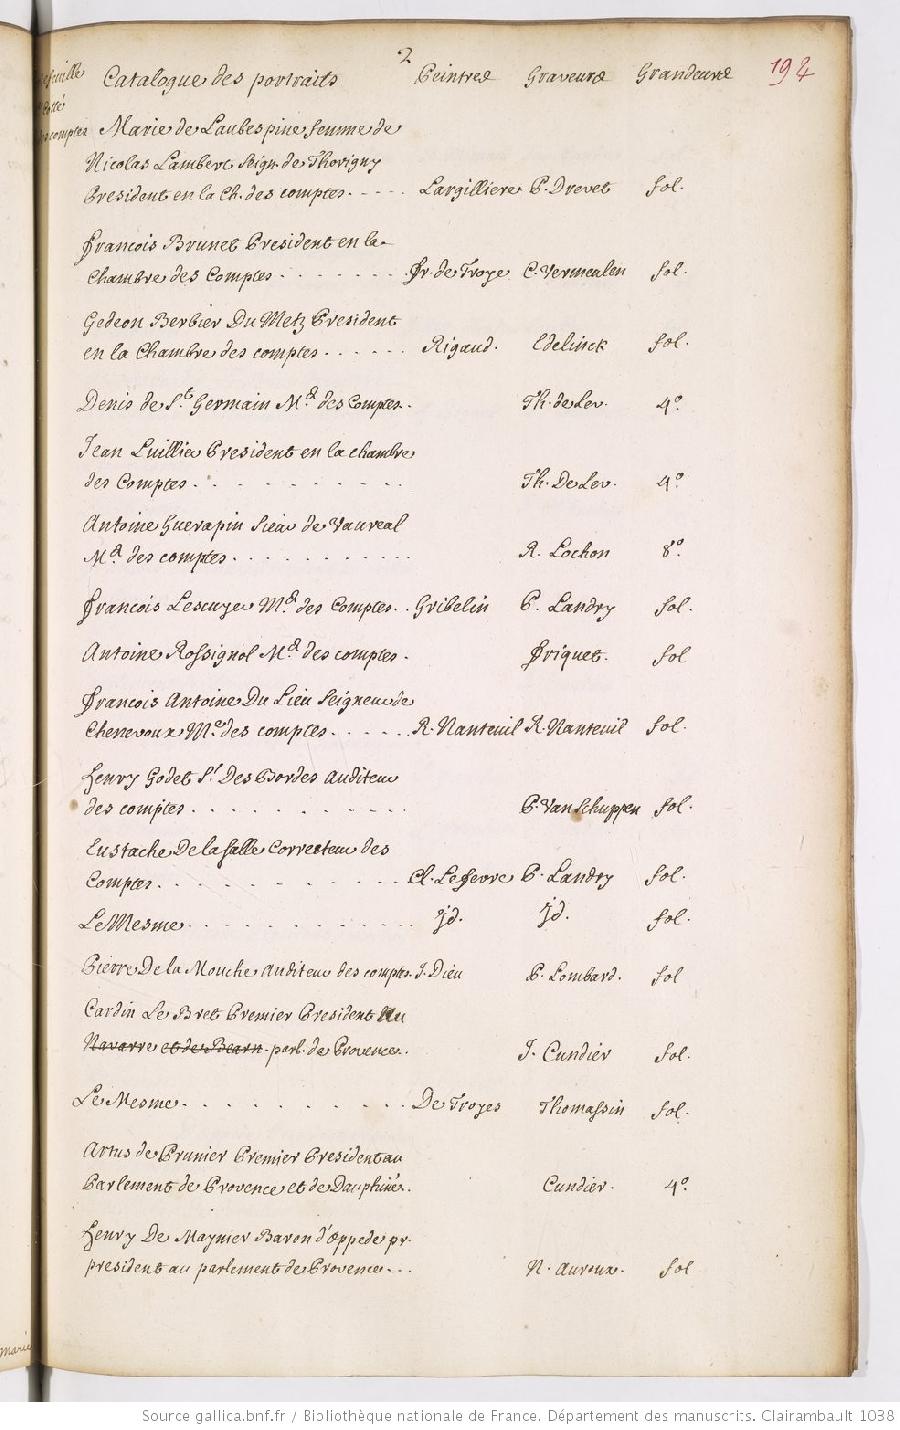 2
Catalogue des portraits Peintres Graveurs Grandeurs 194
Marie de Laubespine femme de
Nicolas Lambert Seigr. de Thorigny
President en la Ch. des comptes. - - - - Largilliere P. Drevet fol.
François Brunet President en la
Chambre des Comptes - - - - - - - Fr. de Troye C. Vermeulen fol.
Gedeon Berbier Du Metz President
en la Chambre des comptes . . . . . . Rigaud. Edelinck fol.
Denis de St. Germain Me. des Comptes. . Th. de Leu. 4º.
Jean Luillier President en la chambre
des Comptes . . . . . . . . . Th. De Leu. 4º
Antoine Guerapin Sieur de Vaureal
Me. des comptes . . . . . . . . . . . R. Lochon 8º.
François Lescuyer Me. des Comptes. . Gribelin P. Landry fol.
Antoine Rossignol Me. des comptes . Friquet. fol
François Antoine Du Lieu Seigneur de
Chenevoux Me. des comptes . . . . . . R. Nanteuil R. Nanteuil fol.
Henry Godet Sr. Des Bordes Auditeur
des comptes . . . . . . . . . . P. Van Schuppen fol.
Eustache De la Salle Correcteur des
Comptes . . . . . . . . . . Cl. Lefevre P. Landry fol.
Le Mesme . . . . . . . . . . . . jd. jd. fol.
Pierre De la Mouche Auditeur des comptes. J. Dieu P. Lombard. fol
Cardin Le Bret Premier President au
Navarre et de Bearn. parl. de Provence. . J. Cundier fol.
Le Mesme . . . . . . . . . . De Troyes Thomassin fol.
Artus de Prunier Premier President au
Parlement de Provence et de Dauphiné. . Cundier. 4º.
Henry De Maynier Baron d'oppede pr.
president au parlement de Provence. . . N. Auroux. fol
Marie
Source gallica.bnf.fr / Bibliothèque nationale de France. Département des manuscrits. Clairambault 1038